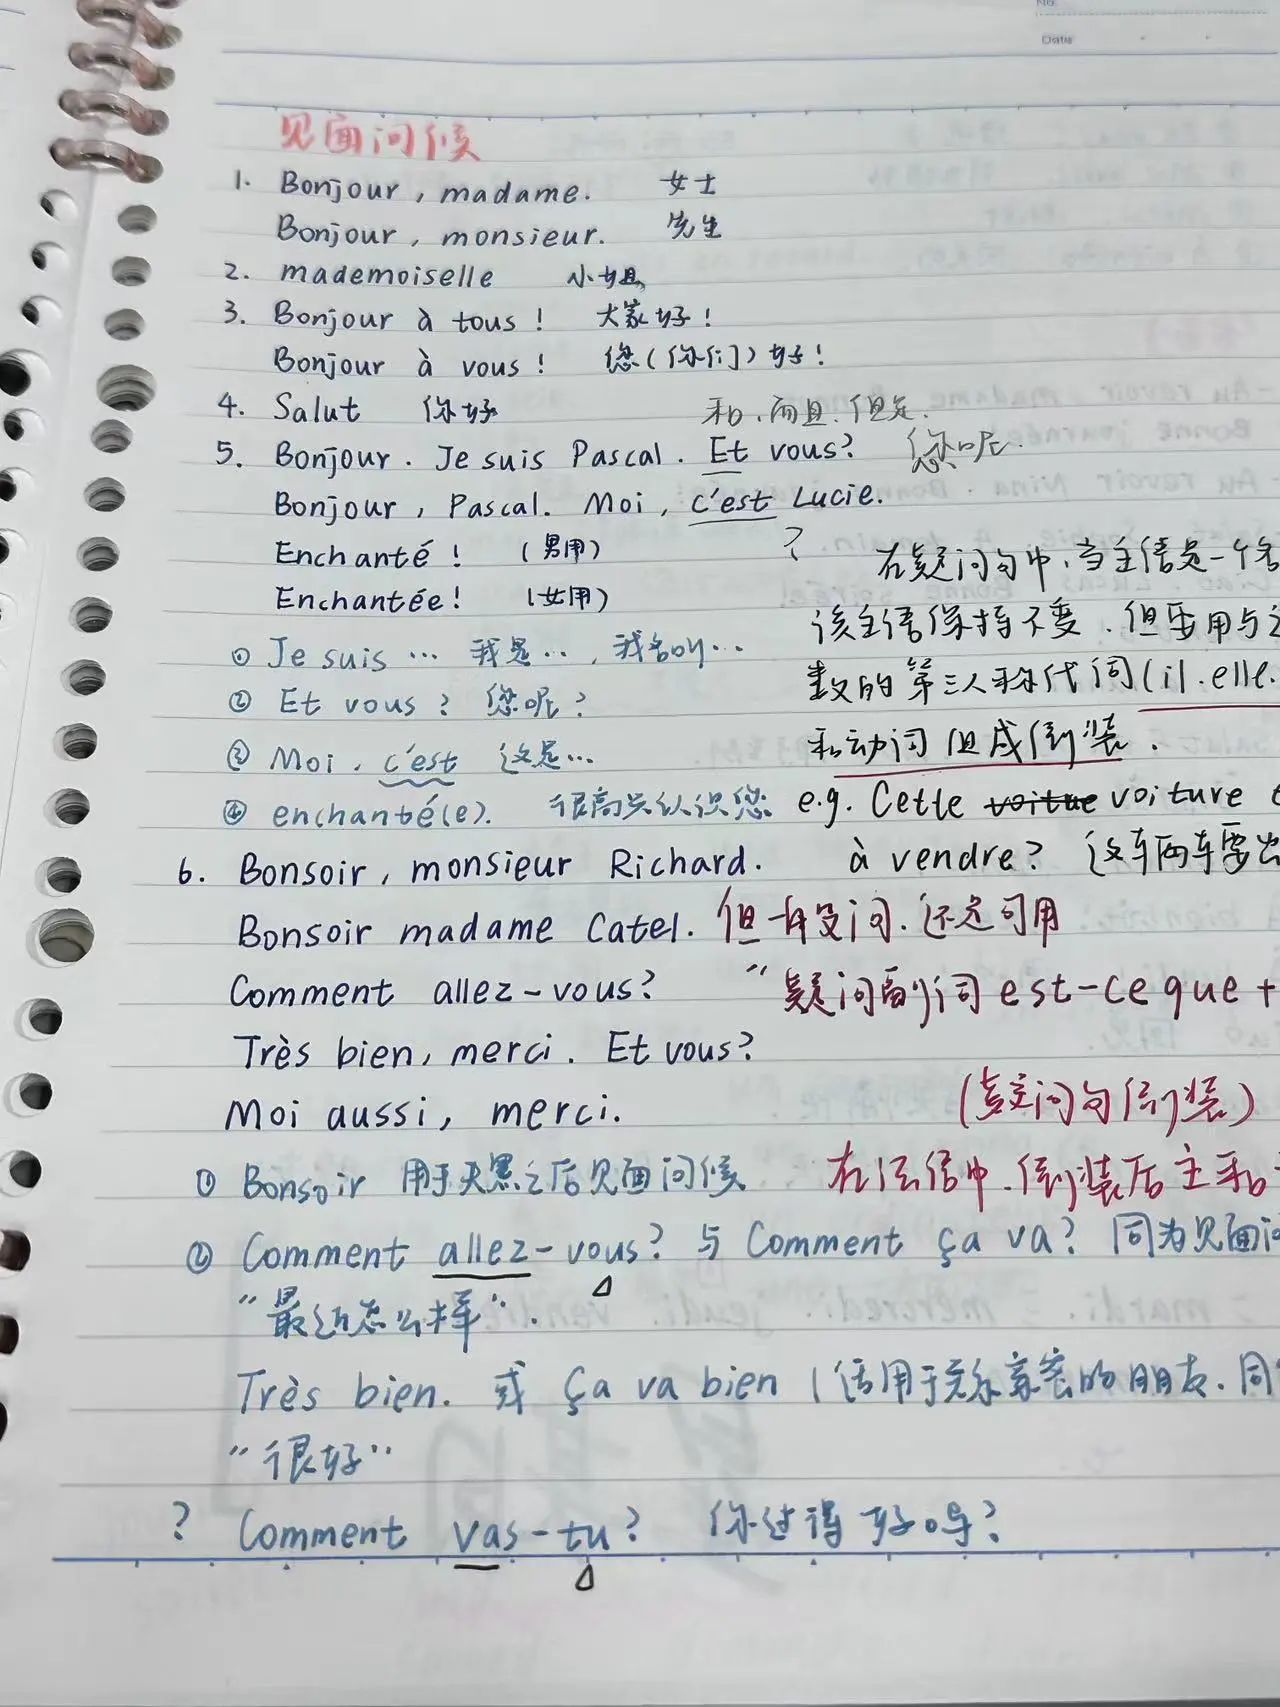 No.
Date
见面问候
1. Bonjour, madame. 女士
Bonjour, monsieur. 先生
2. mademoiselle 小姐
3. Bonjour à tous! 大家好!
Bonjour à vous! 您(你们)好!
4. Salut 你好 和、而且、但是.
5. Bonjour. Je suis Pascal. Et vous? 您呢.
Bonjour, Pascal. Moi, c'est Lucie.
?
Enchanté! (男用)
在疑问句中,当主语是一个名
Enchantée! (女用)
该主语保持不变,但要用与之
① Je suis … 我是…,我名叫…
数的第三人称代词(il.elle.
② Et vous? 您呢?
和动词组成倒装.
③ Moi, c'est 这是…
④ enchanté(e). 很高兴认识您
e.g. Cette voitue voiture
à vendre? 这车辆车要出
6. Bonsoir, monsieur Richard.
Bonsoir madame Catel.
但 问.还是可用
Comment allez-vous?
"疑问副词 est-ce que +
Très bien, merci. Et vous?
Moi aussi, merci.
(疑问句倒装)
① Bonsoir 用于天黑之后见面问候
在法语中.倒装后主和
② Comment allez-vous? 与 Comment ça va? 同为见面问
"最近怎么样".
Très bien. 或 Ça va bien (适用于关系亲密的朋友.同
"很好"
? Comment vas-tu? 你过得好吗?